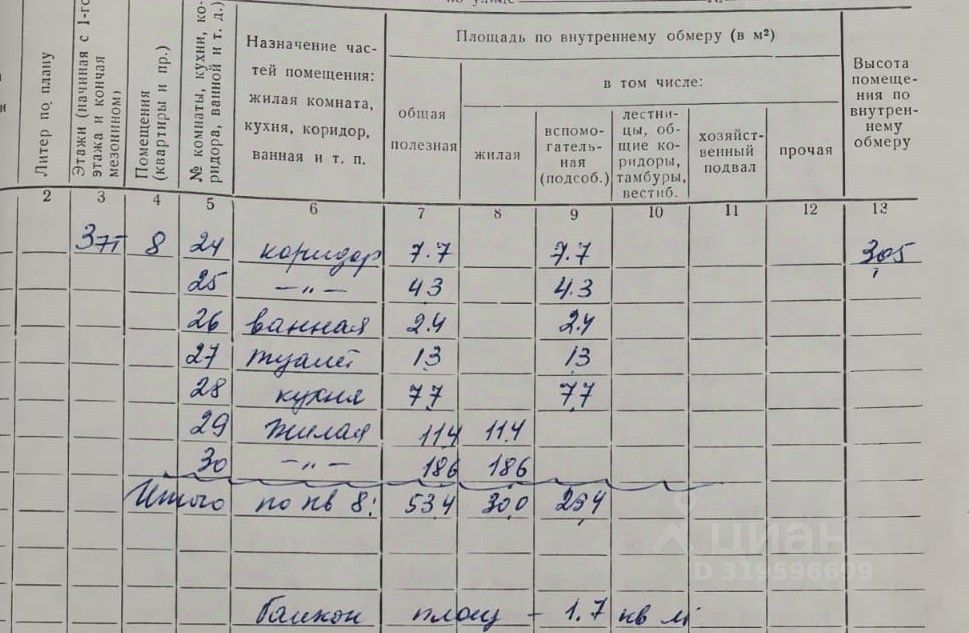 Площадь по внутреннему обмеру (в м²)
Литер по плану
Этажи (начиная с 1-го этажа и кончая мезонином)
Помещения (квартиры и пр.)
№ комнаты, кухни, коридора, ванной и т. д.)
Назначение час-
тей помещения:
жилая комната,
кухня, коридор,
ванная и т. п.
общая
полезная
в том числе:
жилая
вспомо-
гатель-
ная
(подсоб.)
лестни-
цы, об-
щие ко-
ридоры,
тамбуры,
вестиб.
хозяйст-
венный
подвал
прочая
Высота
помеще-
ния по
внутрен-
нему
обмеру
2 3 4 5 6 7 8 9 10 11 12 13
3эт 8 24 коридор 7.7 7.7 3,05
25 —„— 4.3 4.3
26 ванная 2.4 2.4
27 туалет 1,3 1,3
28 кухня 7,7 7,7
29 жилая 11,4 11,4
30 —„— 18,6 18,6
Итого по кв 8: 53,4 30,0 23,4
балкон площ – 1.7 кв м
циан
D 319596699